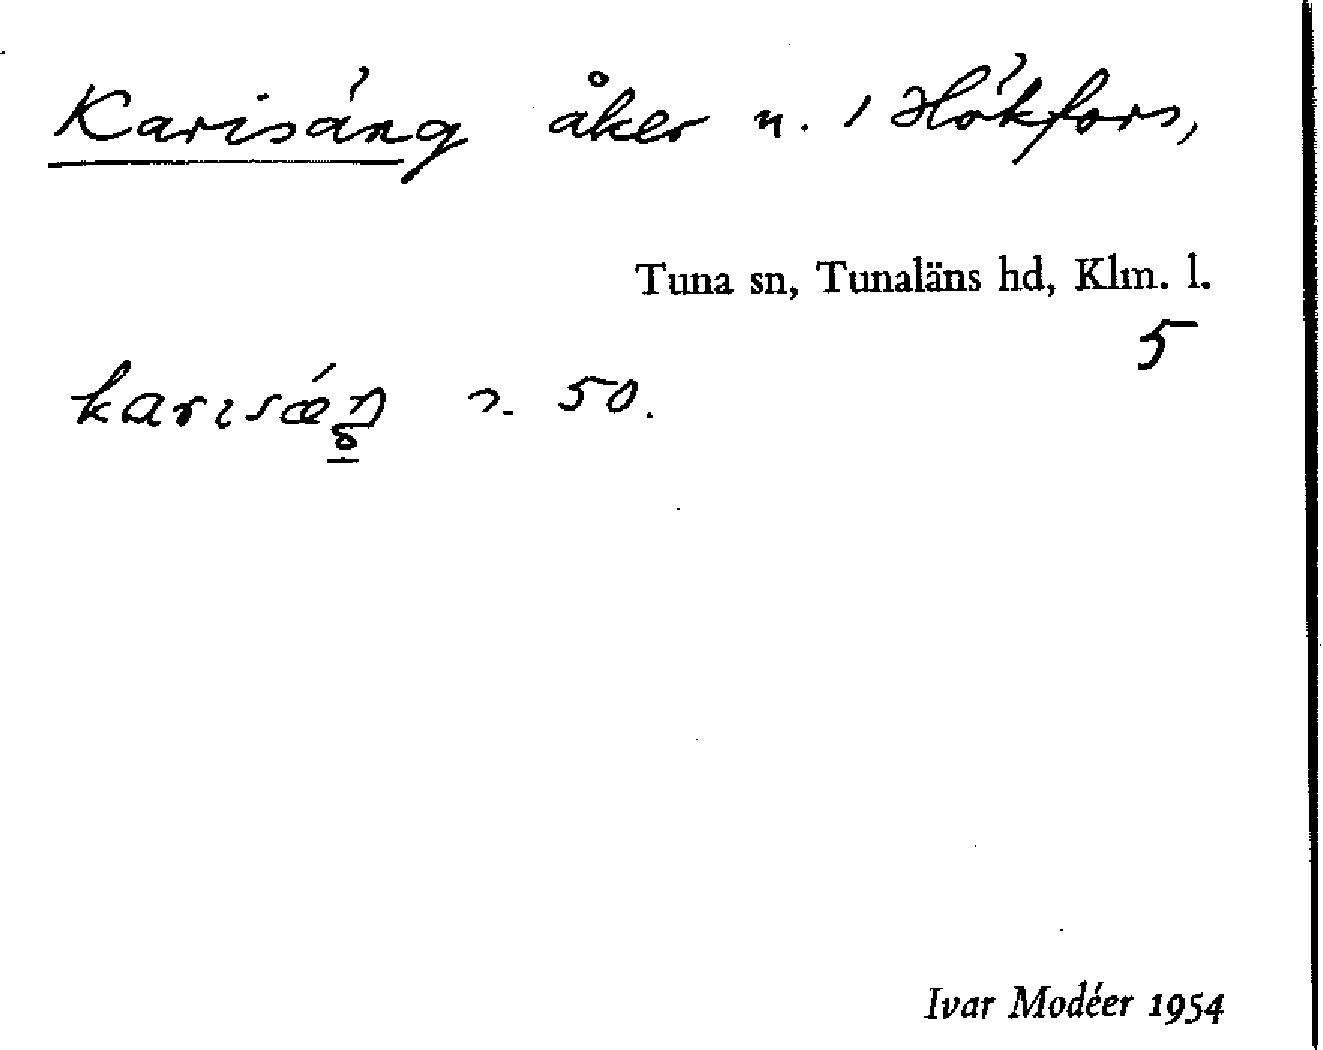 Karisäng åker n. i Hökfors,
Tuna sn, Tunaläns hd, Klm. l.
5
50.
Ivar Modéer 1954